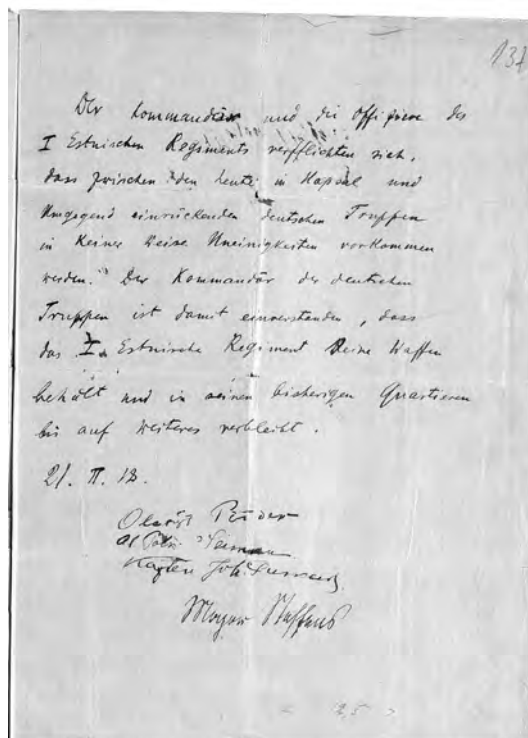 137
Der Kommandör und die Offiziere des
I Estnischen Regiments verpflichten sich,
dass zwischen den heute in Hapsal und
Umgegend einrückenden deutschen Truppen
in keiner Weise Uneinigkeiten vorkommen
werden. Der Kommandör der deutschen
Truppen ist damit einverstanden, dass
das I. Estnische Regiment seine Waffen
behält und in seinen bisherigen Quartieren
bis auf weiteres verbleibt.
21. II. 18.
Oberst
Kapten Joh.
Major Steffens